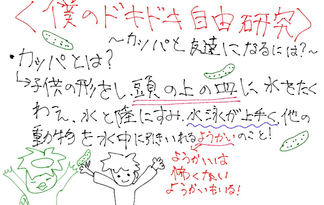 〈僕のドキドキ自由研究〉
～カッパと友達になるには?～
・カッパとは?
↳子供の形をし、頭の上の皿に水をたく
わえ、水と陸にすみ、水泳が上手く、他の
動物を水中に引きいれるようかいのこと!
ようかいは
怖くない
ようかいもいる!